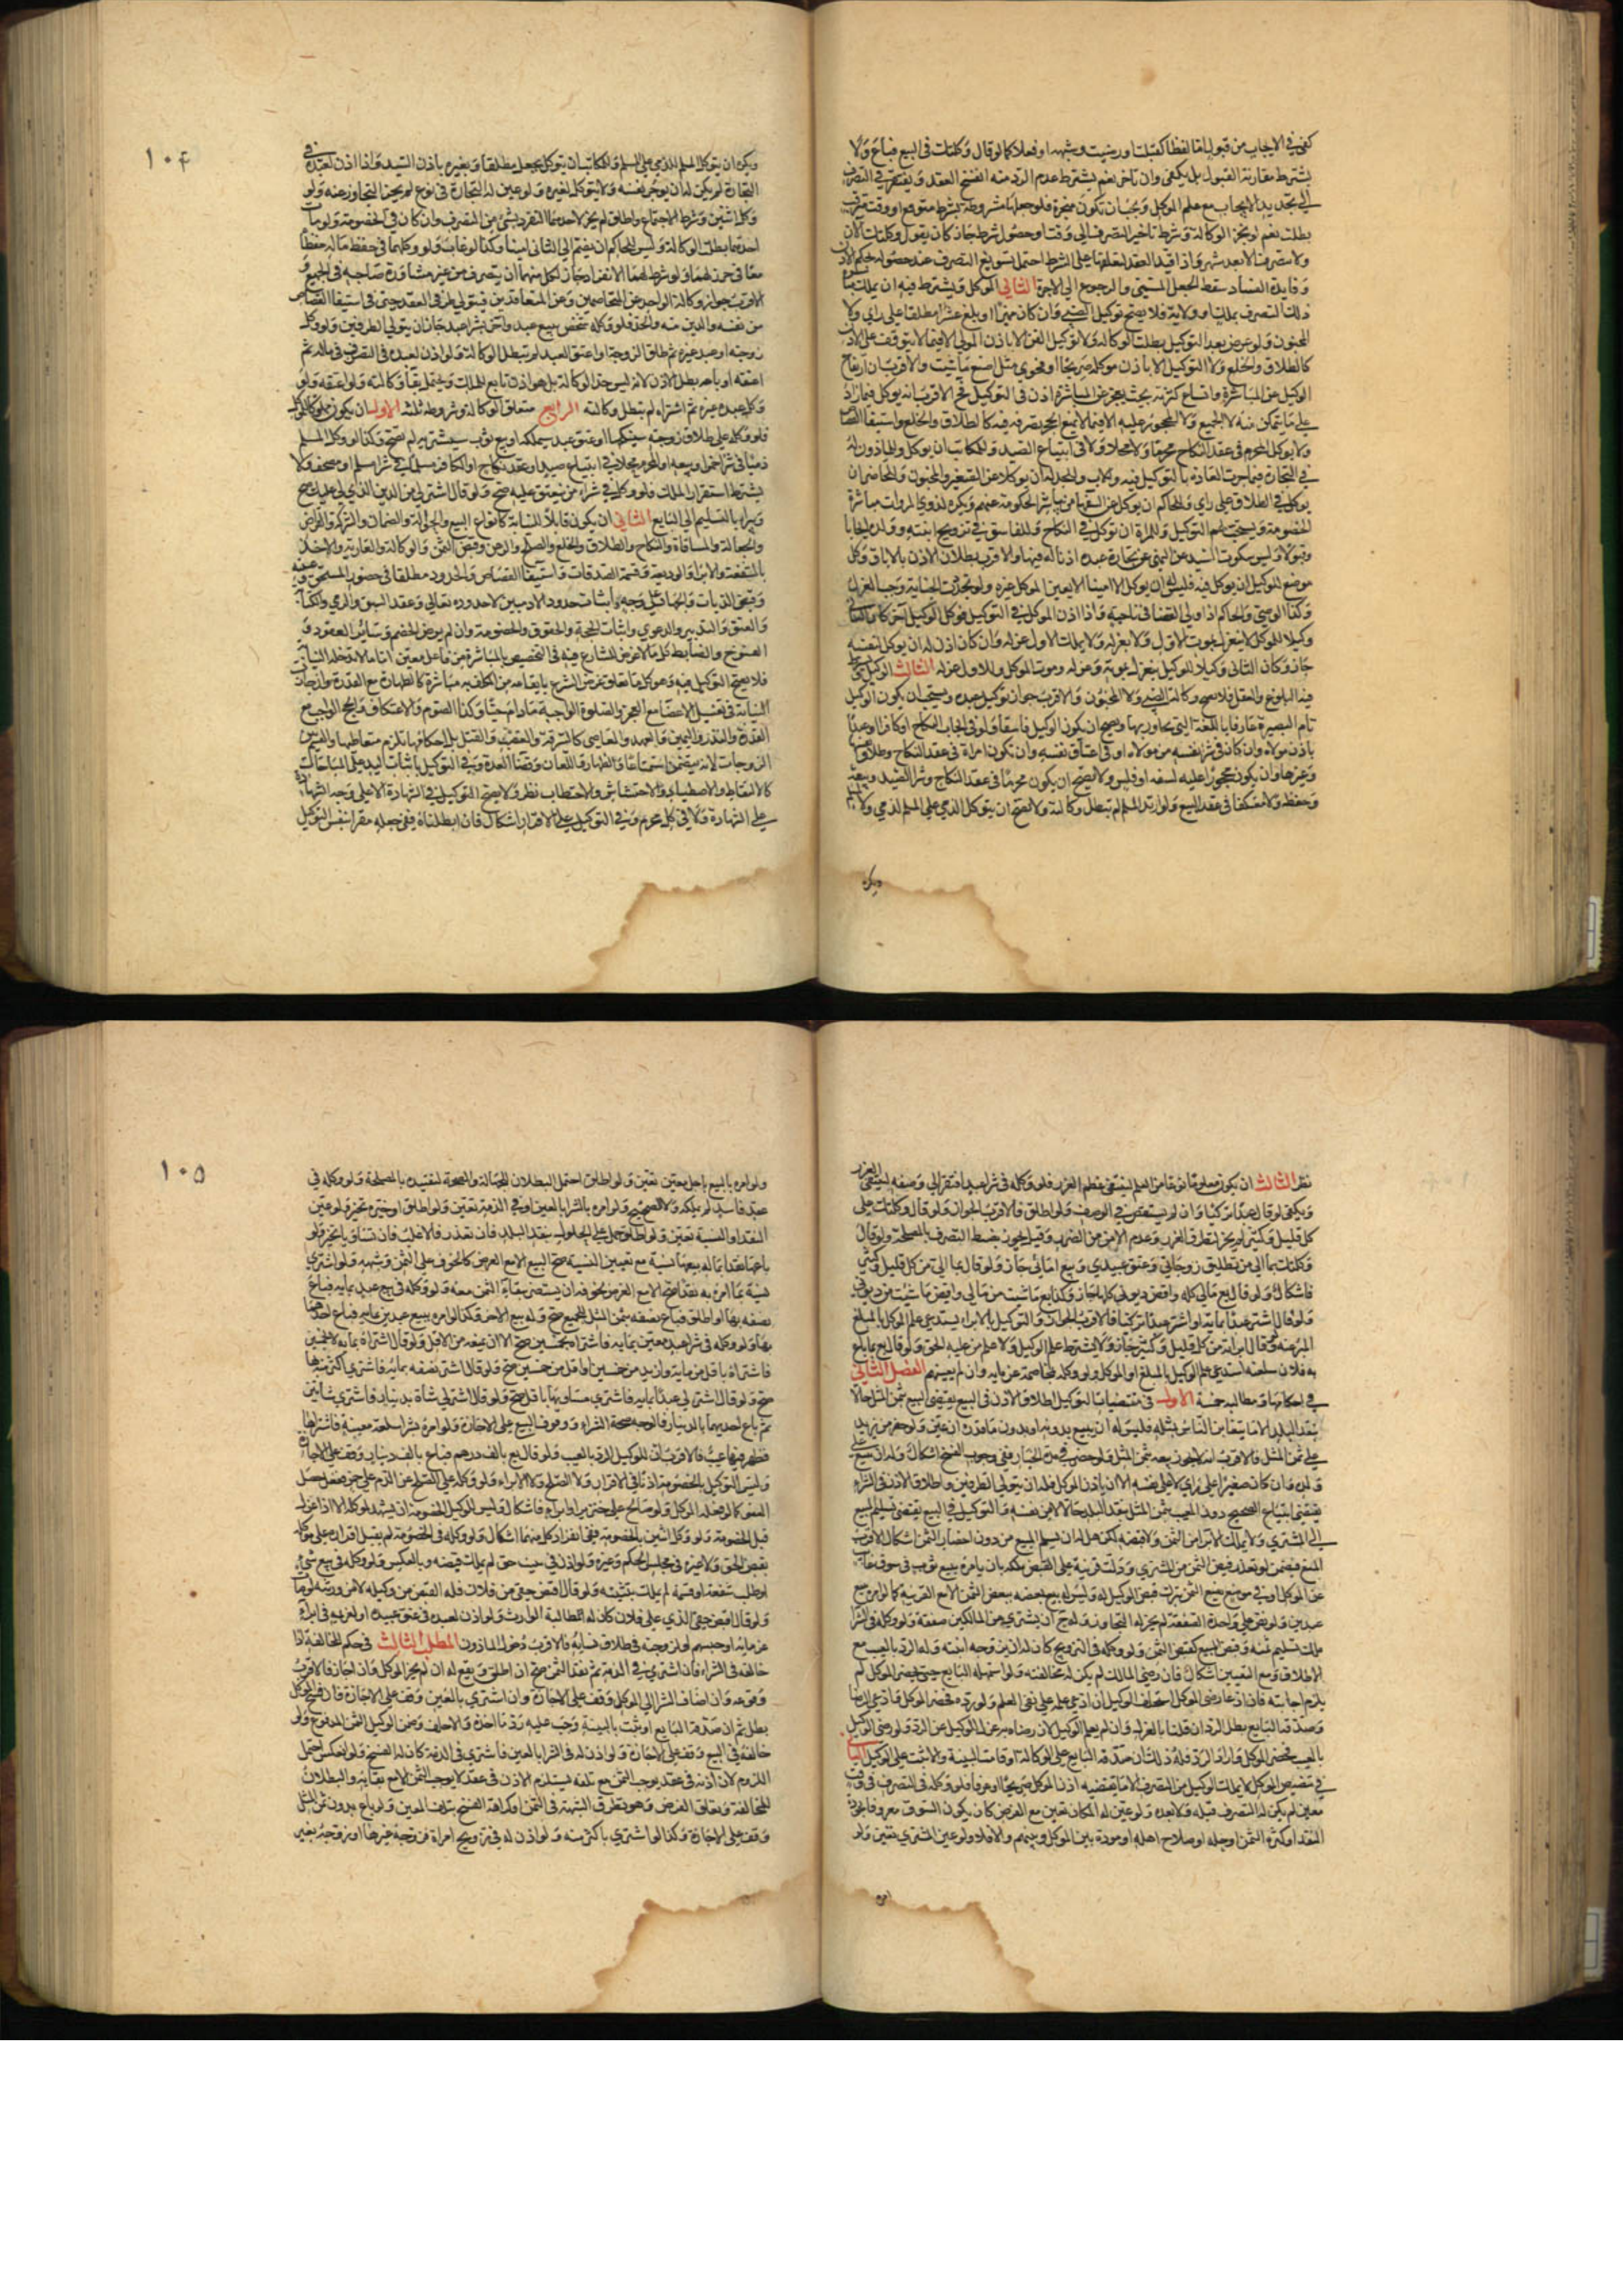 كفى في الايجاب من قبول اما لفظا كقبلت او رضيت وشبهه او فعلا كما لو قال وكلتك في البيع فباع ولا
يشترط مقارنة القبول بل يكفي وان تاخر نعم يشترط عدم الرد منه انفسخ العقد ويفتقر في التصرف
الى تجديد الايجاب مع علم الموكل ويجب ان تكون منجزة فلو جعلها مشروطة بشرط متوقع او وقت مترقب
بطلت نعم لو نجز الوكالة وشرط تاخير التصرف الى وقت او حصول شرط جاز كان يقول وكلتك الان
ولا تتصرف الا بعد شهر واذا فسد العقد لتعلقه على الشرط احتمل تسويغ التصرف عند حصوله بحكم الاذن
وفايدة الفساد سقط الجعل المسمى والرجوع الى الاجرة الثاني الموكل ويشترط فيه ان يملك مباشرة
ذلك التصرف بملك او ولاية فلا يصح توكيل الصبي وان كان مميزا او بلغ عشرا مطلقا على راي ولا
المجنون ولو عرض بعد التوكيل بطلت الوكالة ولا توكيل القن الا باذن المولى الا فيما لا يتوقف على الاذن
كالطلاق والخلع ولا التوكيل الا باذن موكله صريحا او فحوى مثل اصنع ما شيت والاقرب ان ارتفاع
الوكيل عن المباشرة واتساع كثرته بحيث يعجز عن المباشرة اذن في التوكيل فح الاقرب انه يوكل فيما زاد
على ما يتمكن منه لا الجميع ولا المحجور عليه الا فيما لا يمنع الحجر تصرفه فيه كالطلاق والخلع واستيفا القصاص
ولا يوكل المحرم في عقد النكاح محرما ولا محلا ولا في ابتياع الصيد وللمكاتب ان يوكل وللماذون له
في التجارة فيما جرت العادة بالتوكيل فيه وللاب والجد له ان يوكلا عن الصغير والمجنون وللحاضر ان
يوكل في الطلاق على راي وللحاكم ان يوكل عن السفها من يباشر الحكومة عنهم ويكره لذوي المروات مباشرة
الخصومة ويستحب لهم التوكيل وللمراة ان توكل في النكاح وللفاسق في تزويج ابنته وولده ايجابا
وقبولا وليس سكوت السيد عن النهي عن تجارة عبده اذنا له فيها والاقرب بطلان الاذن بالاباق وكل
موضع للوكيل ان يوكل فيه فليس له ان يوكل الا امينا الا بعين الموكل غيره ولو تجددت الخيانة وجب العزل
وكذا الوصي والحاكم اذا ولى القضا في ناحية واذا اذن الموكل في التوكيل فوكل الوكيل اخر كان الثاني
وكيلا للموكل لا ينعزل بموت الاول ولا بعزله ولا يملك الاول عزله وان كان اذن له ان يوكل لنفسه
جاز وكان الثاني وكيلا للوكيل ينعزل بموته وعزله وموت الموكل وللاول عزله الثالث الوكيل ويشترط
فيه البلوغ والعقل فلا يصح وكالة الصبي ولا المجنون والاقرب جواز توكيل عبده ويستحب ان يكون الوكيل
تام البصيرة عارفا باللغة التي يحاور بها ويصح ان يكون الوكيل فاسقا ولو في ايجاب النكاح او كافرا او عبدا
باذن مولاه وان كان في شرا نفسه من مولاه او في اعتاق نفسه وان تكون امراة في عقد النكاح وطلاق نفسها
وغيرها وان يكون محجورا عليه لسفه او فلس ولا يصح ان يكون محرما في عقد النكاح وشرا الصيد وبيعه
وحفظه ولا معتكفا في عقد البيع ولو ارتد المسلم لم تبطل وكالته ولا يصح ان يتوكل الذمي على المسلم لذمي ولا لمسلم
ويكره
١٠۴
ويكره ان يتوكل المسلم للذمي على المسلم وللمكاتب ان يتوكل بجعل مطلقا وبغيره باذن السيد واذا اذن لعبده في
التجارة لم يكن له ان يوجر نفسه ولا يتوكل لغيره ولو عين له التجارة في نوع لم يجز التجاوز عنه ولو
وكل اثنين وشرط الاجتماع او اطلق لم يجز لاحدهما التفرد بشي من التصرف وان كان في الخصومة ولو مات
احدهما بطلت الوكالة وليس للحاكم ان يضم الى الثاني امينا وكذا لو غاب ولو وكلهما في حفظ ماله حفظاه
معا في حرز لهما ولو شرط لهما الانفراد جاز لكل منهما ان يتصرف من غير مشاورة صاحبه في الجميع و
الاقرب جواز وكالة الواحد عن المتخاصمين وعن المتعاقدين فيتولى طرفي العقد حتى في استيفا القصاص
من نفسه والدين منه والحد فلو وكله شخص ببيع عبد واخر بشرا عبد جاز ان يتولى الطرفين ولو وكل
زوجته او عبد غيره ثم طلق الزوجة او اعتق العبد لم تبطل الوكالة ولو اذن لعبده في التصرف في ماله ثم
اعتقه او باعه بطل الاذن لانه ليس حد الوكالة بل هو اذن تابع للملك ويحتمل بقا وكالته ولو اعتقه ولو
وكل عبد غيره ثم اشتراه لم تبطل وكالته الرابع متعلق الوكالة وشروطه ثلثة الاول ان يكون مملوكا للموكل
فلو وكله على طلاق زوجة سينكحها او عتق عبد سيملكه او بيع ثوب سيشتريه لم تصح وكذا لو وكل المسلم
ذميا في شرا خمر او بيعه او المحرم محلا في ابتياع صيد او عقد نكاح او الكافر مسلما في شرا مسلم او مصحف ولا
يشترط استقرار الملك فلو وكله في شراء من ينعتق عليه صح ولو قال اشتر لي من الدين الذي لي عليك صح
ويبراء بالتسليم الى البايع الثاني ان يكون قابلا للنيابة كانواع البيع والحوالة والضمان والشركة والقراض
والجعالة والمساقاة والنكاح والطلاق والخلع والصلح والرهن وقبض الثمن والوكالة والعارية والاخذ
بالشفعة والابرا والوديعة وقسمة الصدقات واستيفا القصاص والحدود مطلقا في حضور المستحق وغيبته
وقبض الديات والجهاد على وجه واثبات حدود الادميين لا حدوده تعالى وعقد السبق والرمي والكتابة
والعتق والتدبير والدعوى واثبات الحجة والحقوق والخصومة وان لم يرض الخصم وساير العقود و
الفسوخ والضابط كل ما لا غرض للشارع فيه في التخصيص بالمباشرة من فاعل معين اما ما لا تدخله النيابة
فلا يصح التوكيل فيه وهو كل ما تعلق غرض الشرع بايقاعه من المكلف به مباشرة كالطهارة مع القدرة وان جازت
النيابة في تغسيل الاعضا مع العجز والصلوة الواجبة مادام حيا وكذا الصوم والاعتكاف والحج الواجب مع
القدرة والنذر واليمين والعهد والمعاصي كالسرقة والغصب والقتل بل احكامها تلزم متعاطيها والقسم بين
الزوجات لانه يتضمن استمتاعا والظهار واللعان وقضا العدة وفي التوكيل باثبات اليد على المباحات
كالالتقاط والاصطياد والاحتشاش والاحتطاب نظر ولا يصح التوكيل في الشهادة الا على وجه الشهادة
على الشهادة ولا في كل محرم وفي التوكيل على الاقرار اشكال فان ابطلناه ففي جعله مقرا بنفس التوكيل
نظر الثالث ان يكون معلوما نوعا من العلم لينتفي عظم الغرر فلو وكله في شرا عبد افتقر الى وصفه لينتفي الغرر
ويكفي لو قال عبدا تركيا وان لم يستقص في الوصف ولو اطلق فالاقرب الجواز ولو قال وكلتك على
كل قليل وكثير لم يجز لتطرق الغرر وعدم الامن من الضرر وقيل يجوز بضبط التصرف بالمصلحة ولو قال
وكلتك بما الي من تطليق زوجاتي وعتق عبيدي وبيع املاكي جاز ولو قال بما الي من كل قليل وكثير
فاشكال ولو قال بع مالي كله واقبض ديوني كلها جاز وكذا بع ما شيت من مالي واقبض ما شيت من ديوني
ولو قال اشتر عبدا بماية او اشتر عبدا تركيا فالاقرب الجواز والتوكيل بالابراء يستدعي علم الموكل بالمبلغ
المبرا عنه ولو قال ابراه من كل قليل وكثير جاز ولا يشترط علم الوكيل ولا علم من عليه الحق ولو قال بع بما باع
به فلان سلعته استدعى علم الوكيل بالمبلغ او الموكل ولو وكله بمخاصمة غرمايه وان لم يعينهم الفصل الثاني
في احكامها ومطالبه خمسة الاول في مقتضيات التوكيل اطلاق الاذن في البيع يقتضي البيع بثمن المثل حالا
بنقد البلد الا ما يتغابن الناس بمثله فليس له ان يبيع بدونه او بدون ما قدره ان عين ولو حضر من يزيد
على ثمن المثل فالاقرب انه لا يجوز بيعه بثمن المثل ولو حضر في مدة الخيار ففي وجوب الفسخ اشكال وله ان يبيع على
ولده وان كان صغيرا على راي لا على نفسه الا ان ياذن الموكل فله ان يتولى الطرفين واطلاق الاذن في الشراء
يقتضي ابتياع الصحيح دون المعيب بثمن المثل بنقد البلد حالا لا من نفسه والتوكيل في البيع يقتضي تسليم المبيع
الى المشتري ولا يملك الابرا من الثمن ولا قبضه لكن هل له ان يسلم المبيع من دون احضار الثمن اشكال الاقرب
المنع فيضمن لو تعذر قبض الثمن من المشتري ولو دلت قرينة على القبض ملكه بان يامره ببيع ثوب في سوق غايب
عن الموكل او في موضع يضيع الثمن بترك قبض الوكيل له وليس له بيع بعضه ببعض الثمن الا مع القرينة كما لو امر ببيع
عبدين ولو نص على وحدة الصفقة لم يجز له التجاوز وله ح ان يشتري من المالكين صفقة ولو وكله في الشرا
ملك تسليم ثمنه وقبض المبيع كقبض الثمن ولو وكله في التزويج كان له ان يزوجه ابنته وله الرد بالعيب مع
الاطلاق ومع التعيين اشكال فان رضي المالك لم يكن له مخالفته ولو استمهله البايع حتى يحضر الموكل لم
يلزم اجابته فان ادعى رضى الموكل استحلف الوكيل ان ادعى علمه على نفي العلم ولو رده فحضر الموكل وادعى الرضا
وصدقه البايع بطل الرد ان قلنا بالعزل وان لم يعلم الوكيل لان رضاه به عزل للوكيل عن الرد ولو رضى الوكيل
بالعيب فحضر الموكل واراد الرد فله ذلك ان صدقه البايع على الوكالة او قامت البينة والا ثبت على الوكيل الثاني
في تخصيص الموكل لا يملك الوكيل من التصرف الا ما يقتضيه اذن الموكل صريحا او عرفا فلو وكله في التصرف في وقت
معين لم يكن له التصرف قبله ولا بعده ولو عين له المكان تعين مع الغرض كان يكون السوق معروفا بجودة
النقد او كثرة الثمن او حله او صلاح اهله او مودة بين الموكل وبينهم والا فلا ولو عين المشتري تعين ولو
امره
١٠٥
ولو امره بالبيع باجل معين تعين ولو اطلق احتمل البطلان للجهالة والصحة لتقييده بالمصلحة ولو وكله في
عقد فاسد لم يملكه ولا الصحيح ولو امره بالشرا بالعين او في الذمة تعين ولو اطلق او خيره تخير ولو عين
النقد او النسية تعين ولو اطلق حمل على الحلول بنقد البلد فان تعذر فالاغلب فان تساويا تخير ولو
باعها نقدا بما له بيعها نسية مع تعيين النسية صح البيع الا مع الغرض كالخوف على الثمن وشبهه ولو اشترى
نسية بما امره به نقدا صح الا مع الغرض نحو فه ان يستضر ببقاء الثمن معه ولو وكله في بيع عبد بماية فباع
نصفه بها او اطلق فباع نصفه بثمن المثل للجميع صح وله بيع الاخر وكذا لو امره ببيع عبدين بماية فباع احدهما
بها ولو وكله في شرا عبد معين بماية فاشتراه بخمسين صح الا ان يمنعه من الاقل ولو قال اشتراه بماية لا بخمسين
فاشتراه باقل من ماية وازيد من خمسين او اقل من خمسين صح ولو قال اشتر نصفه بماية فاشترى اكثر منه بها
صح ولو قال اشتر لي عبدا بماية فاشترى مساويها باقل صح ولو قال اشتر لي شاة بدينار فاشترى شاتين
ثم باع احديهما بالدينار فالوجه صحة الشراء ووقوف البيع على الاجازة ولو امره بشرا سلعة معينة فاشتراها
فظهر فيها عيب فالاقرب ان للوكيل الرد بالعيب ولو قال بع بالف درهم فباع بالف دينار وقف على الاجازة
وليس التوكيل بالخصومة اذنا في الاقرار ولا الصلح ولا الابراء ولو وكله على الصلح عن الدم على خمر ففعل حصل
العفو كما لو فعله الموكل ولو صالح على خنزير او ابراء فاشكال وليس لوكيل الخصومة ان يشهد لموكله الا اذا عزل
قبل الخصومة ولو وكل اثنين بالخصومة ففي انفراد كل منهما اشكال ولو وكله في الخصومة لم يقبل اقراره على موكله
بقبض الحق ولا غيره في مجلس الحكم وغيره ولو اذن في تثبيت حق لم يملك قبضه وبالعكس ولو وكله في بيع شي
او طلب شفعة او قسمة لم يملك تثبيته ولو قال اقبض حقي من فلان فله القبض من وكيله لا من ورثته لو مات
ولو قال اقبض حقي الذي على فلان كان له مطالبة الوارث ولو اذن لعبده في عتق عبيده او لغريمه في ابراء
غرمايه او حبسهم او لزوجته في طلاق نسايه فالاقرب دخول الماذون المطلب الثالث في حكم المخالفة اذا
خالفه في الشراء فان اشترى في الذمة ثم نقد الثمن صح ان اطلق ويقع له ان لم يجز الموكل وان اجاز فالاقرب
وقوعه وان اضاف الشرا الى الموكل وقف على الاجازة وان اشترى بالعين وقف على الاجازة فان فسخ الموكل
بطل ثم ان صدقه البايع او ثبت بالبينة وجب عليه رد ما اخذه والا حلف وضمن الوكيل الثمن المدفوع ولو
خالفه في البيع وقف على الاجازة ولو اذن له في الشرا بالعين فاشترى في الذمة كان له الفسخ ولو انعكس احتمل
اللزوم لان اذنه في عقد يوجب الثمن مع تلفه يستلزم الاذن في عقد لا يوجب الثمن الا مع بقايه والبطلان
للمخالفة وتعلق الغرض وهو تطرق الشبهة في الثمن او كراهة الفسخ بتلف العين ولو باع بدون ثمن المثل
وقف على الاجازة وكذا لو اشترى باكثر منه ولو اذن له في تزويج امراة فزوجه غيرها او زوجه بغير